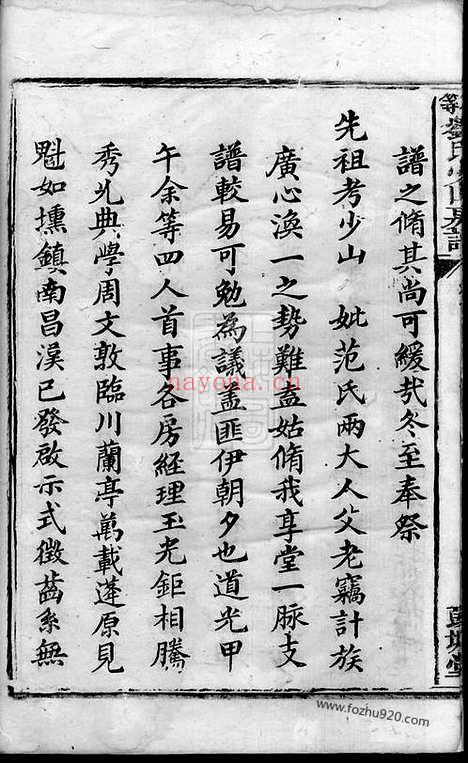 譜之脩其尚可緩㢤冬至奉祭
先祖考少山 妣范氏兩大人父老竊計族
廣心渙一之勢難盍姑脩我享堂一脉支
譜較易可勉為議盖匪伊朝夕也道光甲
午余等四人首事各房経理玉光鉅相騰
秀光典學周文敦臨川蘭亭萬載蓬原見
魁如攥鎮南昌漠已發啟示式徴齒系無
nayona.cn
www.fozhu920.com